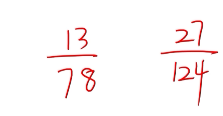 13/78 27/124